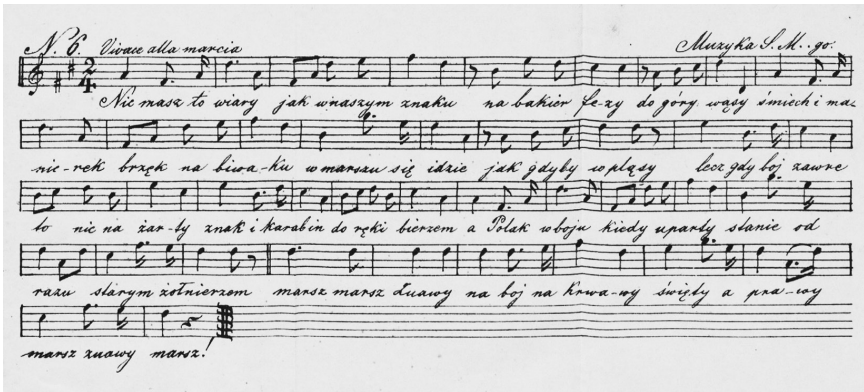 N. 6. Vivace alla marcia Muzyka S. M..go.
2 4
Nie masz to wiary jak w naszym znaku na bakier fe-zy do góry wąsy śmiech i ma-
nie-rek brzęk na biwa-ku w marszu się idzie jak gdyby w pląsy lecz gdy bój zawre
to nie na żar-ty znak i karabin do ręki bierzem a Polak w boju kiedy uparty stanie od
razu starym żołnierzem marsz marsz Żuawy na bój na krwa-wy święty a pra-wy
marsz żuawy marsz!